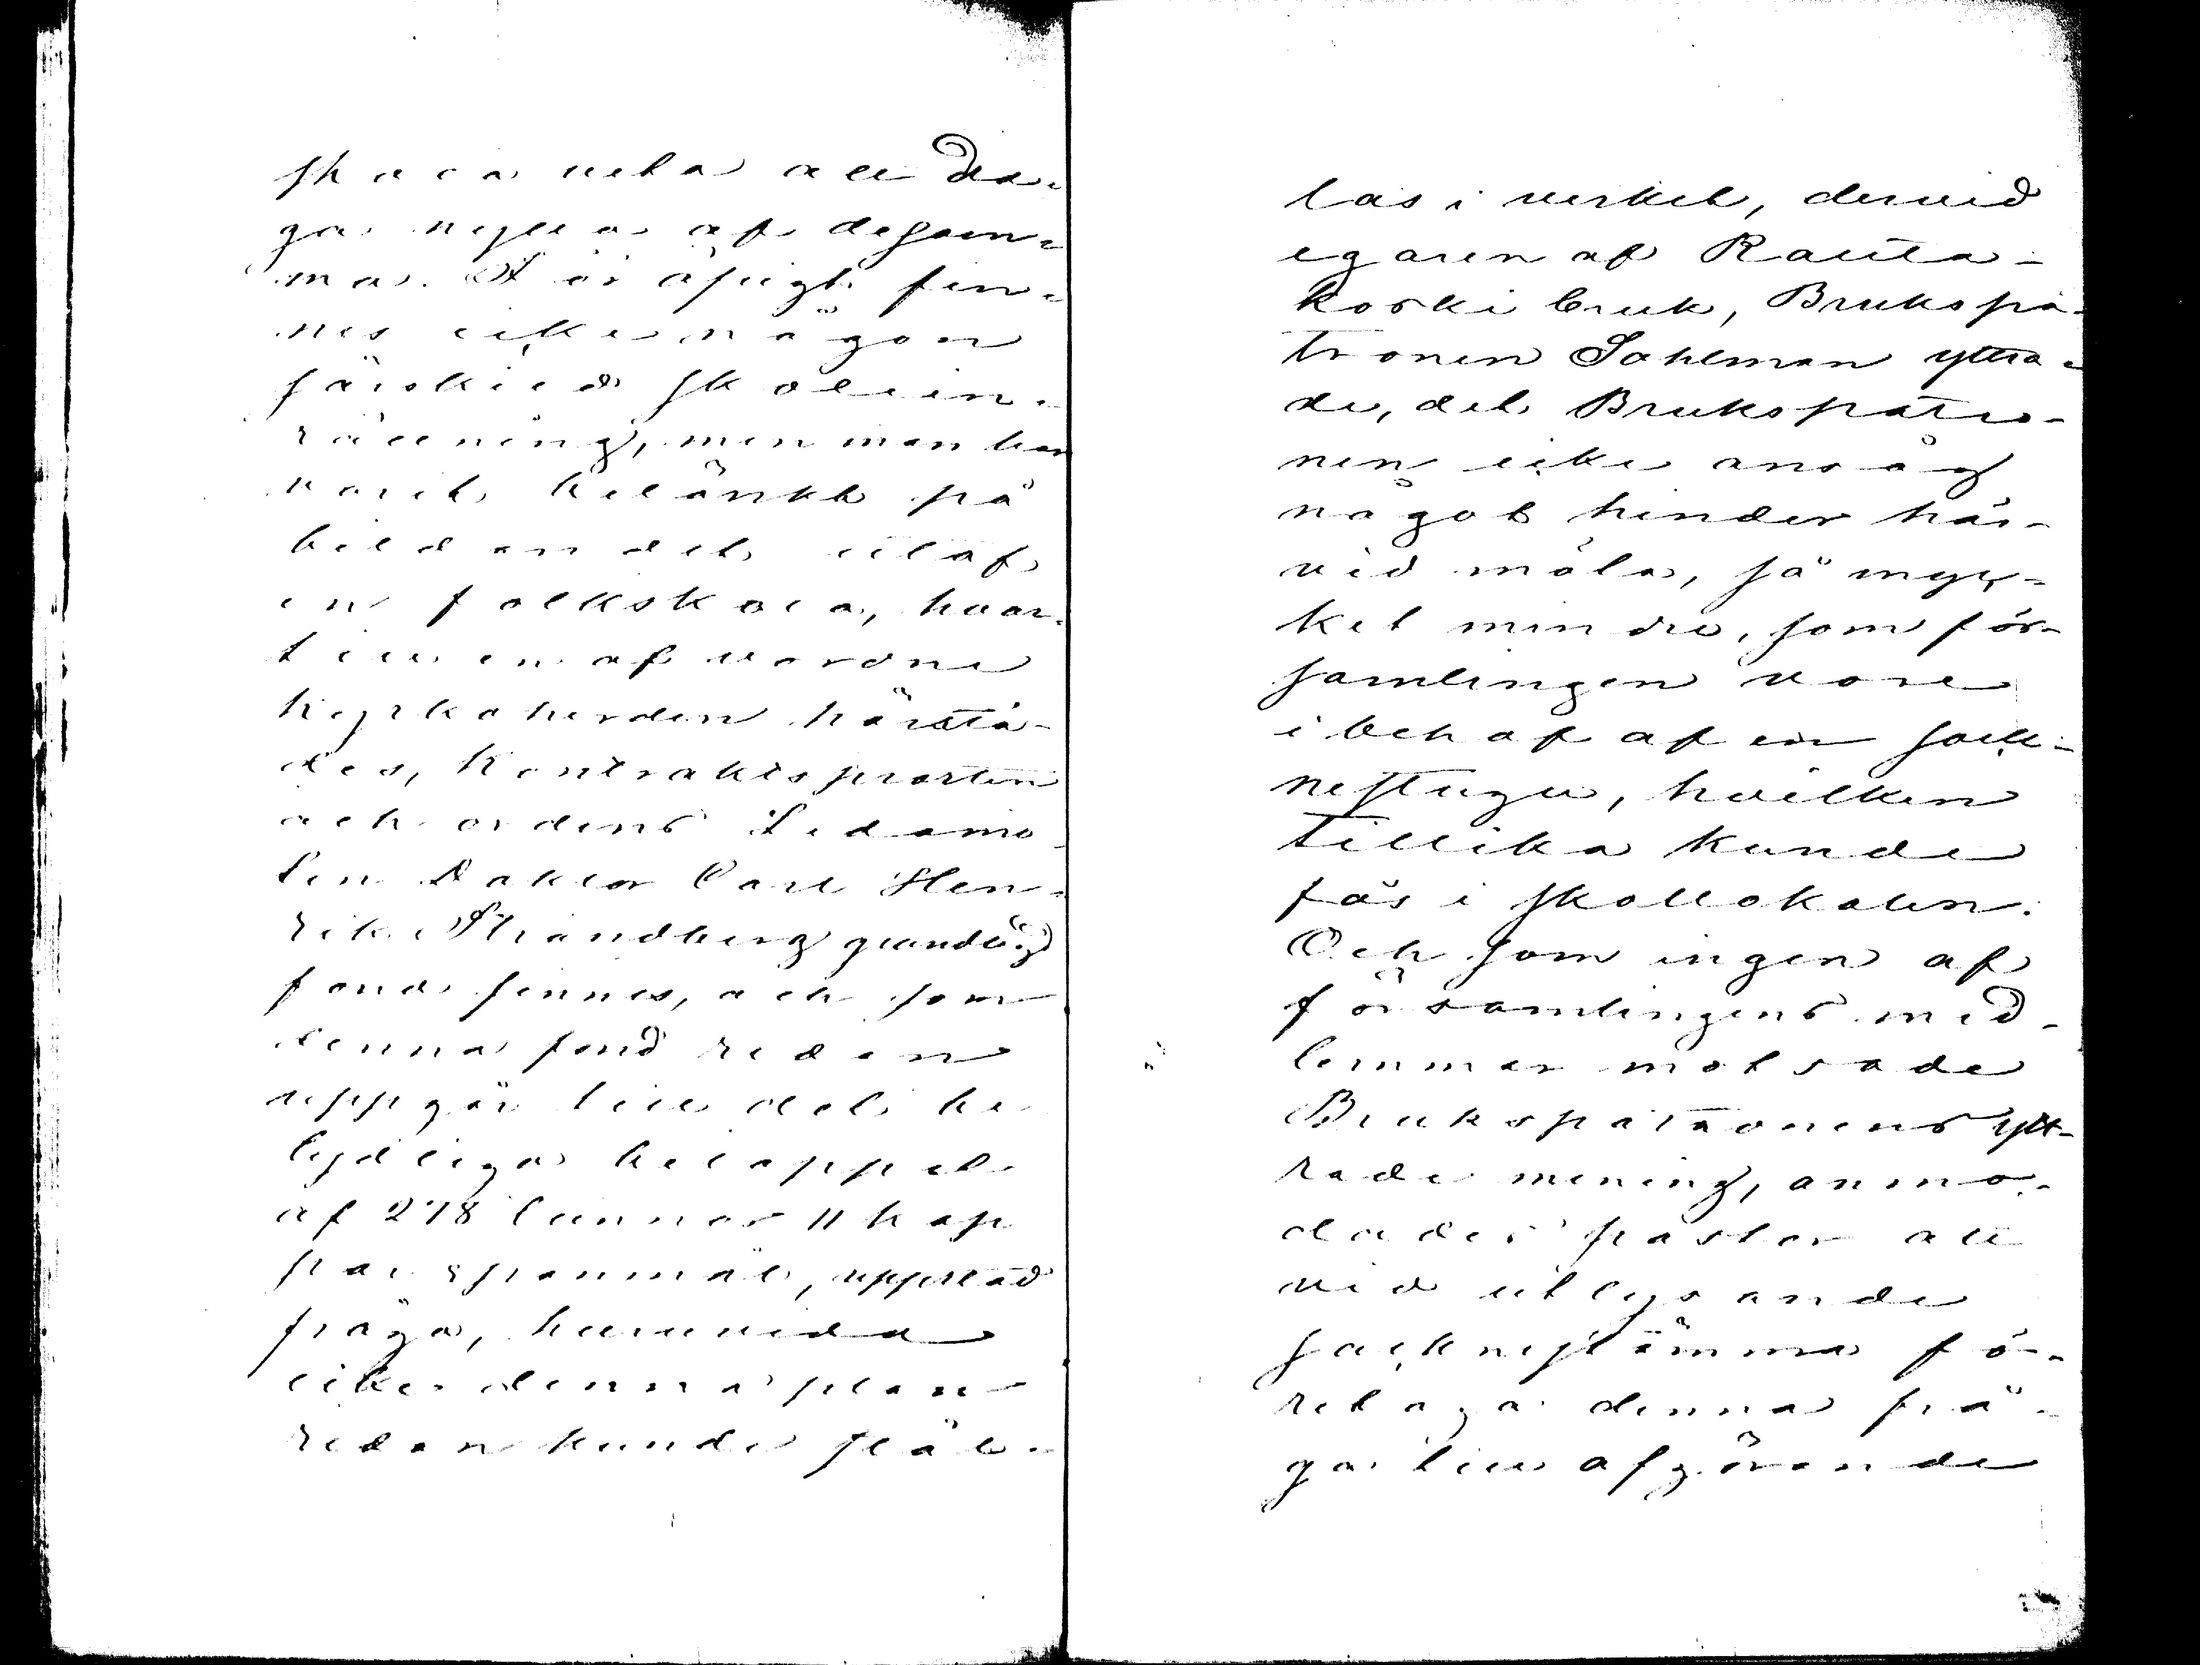 skola veta att dra-
ga nytta af desam-
ma. För öfrigt fin-
nes icke någon
särskild skolin-
rättning, men man har
varit betänkt på
bildandet utaf
en folkskola, hvar-
till en af vordne
kyrkoherden härstä-
des, Kontraktsprosten
och ordens Ledamo-
ten Doktor Carl Hen-
rik Strandberg grundlagd
fond finnes, och som
denna fond redan
uppgår till det be
tydliga beloppet
af 278 tunnor 11 kap
par spanmål, uppstod
fråga, huruvida
icke denna plan
redan kunde stäl-
las i verket, dervid
egaren af Rauta-
koski bruk, Brukspa-
tronen Sahlman yttra-
de, det Brukspatro-
nen icke ansåg
något hinder här-
vid möta, så myc-
ket mindre, som för-
samlingen vore
i behof af en sock-
nestuga, hvilken
tillika kunde
fås i skollokalen.
Och som ingen af
församlingens med-
lemmar motsade
Brukspatronens ytt-
rade mening, anmo-
dades pastor att
vid utlysande
socknestämma fö-
retaga denna frå-
ga till afgörande